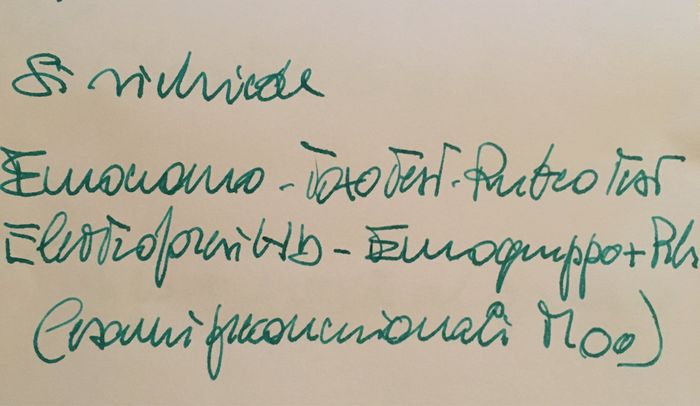 Si richiede
Emocromo - Toxo Test - Rubeo Test
Elettroforesi Hb - Emogruppo + Rh
(esami preconcezionali M00)